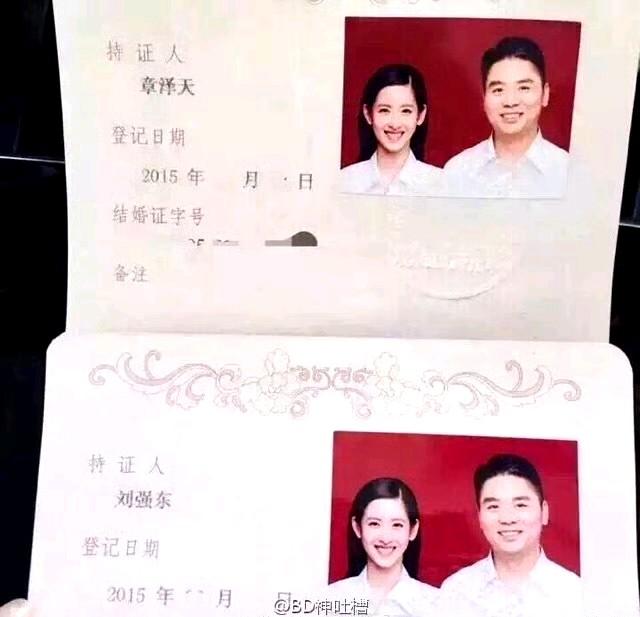 持证人
章泽天
登记日期
2015 年 月 日
结婚证字号
备注
持证人
刘强东
登记日期
2015 年 月 日
@BD神吐槽